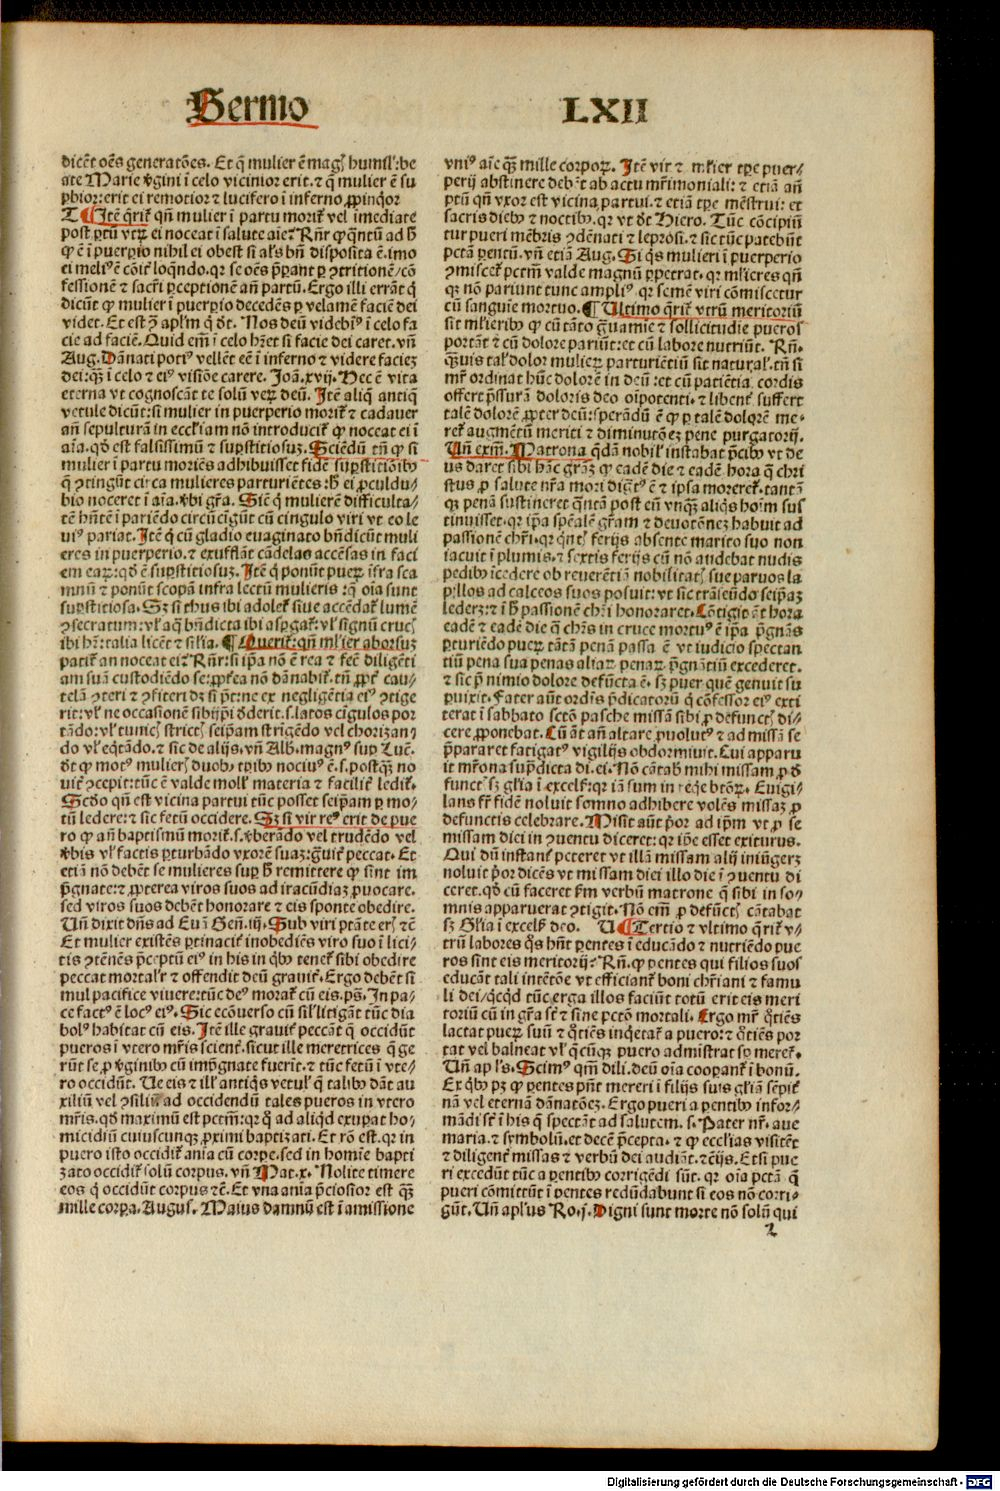 Sermo
LXII
dicēt oēs generatōes. Et q̄ mulier ē mag̃ humil̛: be
ate Marie v̛gini ī celo vicinior erit. ⁊ q̄ mulier ē su
ꝑbior: erit ei remotior ⁊ lucifero ī inferno ꝓpinq̄or
T ¶ Itē q̄rit̄ qn̄ mulier ī partu morit̄ vel imediate
post ꝑtū vtꝝ ei noceat ī salute aīe? Rn̄r ꝙ q̄ntū ad h̄
ꝙ ē ī puerꝑio nihil ei obest si al̛s bn̄ disposita ē. imo
ei meliꝰ ē cōit̄ loq̄ndo. qr se oēs p̄parāt ꝑ ꝯtritionē / cō
fessionē ⁊ sacr̄i ꝑceptionē an̄ partū. Ergo illi errāt q̄
dicūt ꝙ mulier ī puerꝑio decedēs ꝑ velamē faciē dei
videt. Et est ꝯ apl̄m q̄ d̄t. Nos deū videbimꝰ ī celo fa
cie ad faciē. Quid em̄ ī celo h̄et si facie dei caret. vn̄
Aug. Dānati potiꝰ vellēt eē ī inferno ⁊ videre faciez
dei: qz̄ ī celo ⁊ eiꝰ visiōe carere. Joā. xvij. Hec ē vita
eterna vt cognoscāt te solū veꝝ deū. Itē aliq̄ antiq̄
vetule dicūt: si mulier in puerperio morit̄ ⁊ cadauer
an̄ sepulturā in eccl̄iam nō introducit̄ ꝙ noceat ei ī
aīa. qd̄ est falsissimū ⁊ suꝑstitiosuz. Sciēdū tn̄ ꝙ si
mulier ī partu moriēs adhibuisset fidē suꝑstitiōibꝰ
q̄ ꝯtingūt circa mulieres parturiētes: h̄ ei ꝓculdu-
bio noceret ī aīa. v̛bi gr̄a. Sicē q̄ mulierē difficulta-
tē hn̄tē ī pariēdo circūcīgūt cū cingulo viri vt eo le
uiꝰ pariat. Itē q̄ cū gladio euaginato bn̄dicūt muli
eres in puerperio. ⁊ exufflāt cādelas accēsas in faci
em eaꝝ: qd̄ ē suꝑstitiosuz. Itē q̄ ponūt pueꝝ īfra sca
mnū ⁊ ponūt scopā infra lectū mulieris: q̄ oīa sunt
suꝑstitiosa. Sz si thus ibi adolet̄ siue accēdat̄ lumē
ꝯsecratum: vl̛ aq̄ bn̄dicta ibi asꝑgat̄: vl̛ signū crucꝭ
ibi h̄r: talia licēt ⁊ sil̛ia. ¶ Querit̄: qn̄ ml̄ier aborsuz
patit̄ an noceat ei? Rn̄r: si ip̄a nō ē rea ⁊ fec̄ diligēti
am suā custodiēdo se: ꝓpt̄ea nō dānabit̄. tn̄ ꝓpt̄ cau-
telā ꝯteri ⁊ ꝯfiteri dz si p̄t: ne ex negligētia eiꝰ ꝯtige
rit: vl̛ ne occasionē sibijp̄i dederit. s. latos cīgulos por
tādo: vl̛ tunicꝭ strictꝭ seip̄am strīgēdo vel chorizan?
do vl̛ eq̄tādo. ⁊ sic de alijs. vn̄ Alb. magnꝰ suꝑ Luc̄.
d̄t ꝙ motꝰ mulierꝭ duobꝰ tꝑibꝰ nociuꝰ ē. s. postqz̄ no
uit̄ ꝯcepit: tūc ē valde moll̛ materia ⁊ facilit̄ ledit̄.
Scd̄o qn̄ est vicina partui tūc posset seip̄am ꝑ mo-
tū ledere: ⁊ sic fetū occidere. Sz si vir reꝰ erit de pue
ro ꝙ an̄ baptismū morit̄. s. v̛berādo vel trudēdo vel
v̛bis vl̛ factis ꝑturbādo vxorē suaz: grauit̄ peccat. Et
etiā nō debēt se mulieres suꝑ h̄ remittere ꝙ sint im
p̄gnate: ⁊ ꝓpterea viros suos ad iracūdiaz ꝓuocare.
sed viros suos debēt honorare ⁊ eis sponte obedire.
Un̄ dixit dn̄s ad Euā Gen̄. iij. Sub viri ptāte erꝭ ⁊c̄
Et mulier existēs ꝑtinacit̄ inobediēs viro suo ī lici-
tis ꝯtēnēs p̄ceptū eiꝰ in his in qbꝰ tenet̄ sibi obedire
peccat mortal̛r ⁊ offendit deū grauit̄. Ergo debēt si
mul pacifice viuere: tūc deꝰ morat̄ cū eis. ps̄. In pa-
ce factꝰ ē locꝰ eiꝰ. Sic ecōuerso cū sil̛ litigāt tūc dia
bolꝰ habitat cū eis. Itē ille grauit̄ peccāt q̄ occidūt
pueros ī vtero mr̄is scient̄. sicut ille meretrices q̄ ge
rūt se ꝓ v̛ginibꝰ cū imp̄gnate fuerit̄. ⁊ tūc fetū ī vte-
ro occidūt. Ue eis ⁊ ill̛ antiq̄s vetul̛ q̄ talibꝰ dāt au
xiliū vel ꝯsiliū ad occidendū tales pueros in vtero
mr̄is. qd̄ maximū est pctm̄: qr q̄ ad aliqd exuꝑat ho-
micidiū cuiuscunqꝫ ꝓximi baptizati. Et rō est. qr in
puero isto occidit̄ anīa cū corꝑe. sed in homīe bapti
zato occidit̄ solū corpus. vn̄ Mat. x. Nolite timere
eos q̄ occidūt corpus ⁊c̄. Et vna anīa p̄ciosior est qz̄
mille corꝑa. Augus. Maius damnū est ī amissione
vniꝰ aīe qz̄ mille corpoꝝ. Itē vir ⁊ ml̄ier tꝑe puer-
perij abstinere debēt ab actu mr̄imoniali: ⁊ etiā an̄
ptū qn̄ vxor est vicina partui. ⁊ etiā tꝑe mēstrui: et
sacris diebꝰ ⁊ noctibꝰ. qr vt d̄t Hiero. Tūc cōcipiūt̄
tur pueri mēbris ꝯdēnati ⁊ leprosi. ⁊ sic tūc patebūt
pctā ꝑentū. vn̄ etiā Aug. Si qs mulieri ī puerperio
ꝯmiscet̄ pctm̄ valde magnū ꝑpetrat. qr ml̄ieres qn̄
qz nō pariunt tunc ampliꝰ qr semē viri cōmiscetur
cū sanguīe mortuo. ¶ Ultimo q̄rit̄ vtrū meritoriū
sit ml̄ieribꝰ ꝙ cū tāto grauamīe ⁊ sollicitudīe pueros
portāt ⁊ cū dolore pariūt: et cū labore nutriūt. Rn̄.
qz̄uis tal̛ dolor mulieꝝ parturiētiū sit natural̛. tn̄ si
mr̄ ordinat hūc dolorē in deū: et cū patiētia cordis
offert p̄ssurā doloris deo oīpotenti. ⁊ libent̄ suffert
talē dolorē ꝓpter deū: sperādū ē ꝙ ꝑ talē dolorē me-
ret̄ augmētū meriti ⁊ diminutōez pene purgatorij.
Un̄ exm̄. Matrona q̄dā nobil̛ instabat p̄cibꝰ vt de
us daret sibi hāc gr̄az ꝙ eadē die ⁊ eadē hora q̄ chri
stus ꝓ salute nr̄a mori dignatꝰ ē ⁊ ipsa moreret̄. tantā
qz penā sustineret q̄ntā post eū vnqz̄ aliqs hoīm sus
tinuisset. qr ip̄a sp̄ealē gr̄am ⁊ deuotōnez habuit ad
passionē chr̄i. qr q̄ntꝭ ferijs absente marito suo non
iacuit ī plumis. ⁊ sextis ferijs cū nō audebat nudis
pedibꝰ īcedere ob reuerētiā nobilitatꝭ sue paruos la
pillos ad calceos suos posuit: vt sic trāseūdo seip̄az
lederz: ⁊ ī h̄ passionē chr̄i honoraret. Cōtigit āt hora
eadē ⁊ eadē die q̄ chr̄s in cruce mortuꝰ ē ip̄a p̄gnās
ꝑturiēdo pueꝝ tātā penā passa ē vt iudicio spectan
tiū pena sua penas aliaꝝ penaꝝ p̄gnātiū excederet.
⁊ sic p̄ nimio dolore defūcta ē. sz puer quē genuit su
ꝑuixit. Frater aūt ordīs p̄dicatorū q̄ cōfessor eiꝰ exti
terat ī sabbato scto pasche missā sibi ꝓ defunctꝭ di-
cere ꝓponebat. Cū āt an̄ altare ꝓuolutꝰ ⁊ ad missā se
p̄pararet fatigatꝰ vigilijs obdormiuit. Cui apparu
it mr̄ona supradicta dī. ei. Nō cātab mihi missam ꝓ d̄
functꝭ sz gl̄ia ī excelsꝭ: qr iā sum in reqe btōꝝ. Euigi-
lans fr̄ fidē noluit somno adhibere volēs missaz ꝓ
defunctis celebrare. Misit aūt p̄or ad ip̄m vt ꝓ se
missam diei in ꝯuentu diceret: qr ip̄e esset exiturus.
Qui dū instant̄ peteret vt illā missam alij iniūgerz
noluit p̄or dicēs vt missam diei illo die ī ꝯuentu di
ceret. qd̄ cū faceret ẜm verbū matrone q̄ sibi in so?
mnis apparuerat ꝯtigit. Nō em̄ ꝓ defūctꝭ cātabat
sz Gl̄ia ī excelsꝭ deo. U ¶ Tertio ⁊ vltimo q̄rit̄ v-
trū labores q̄s hn̄t ꝑentes ī educādo ⁊ nutriēdo pue
ros sint eis meritorij? Rn̄. ꝙ ꝑentes qui filios suos
educāt tali intētōe vt efficiant̄ boni chr̄iani ⁊ famu
li dei / qcqd tūc erga illos faciūt totū erit eis meri
toriū cū in gr̄a sr̄t ⁊ sine pctō mortali. Ergo mr̄ q̄tiēs
lactat pueꝝ suū ⁊ q̄tiēs inqetat̄ a puero: ⁊ q̄tiēs por
tat vel balneat vl̛ qcūqz puero admīstrat sꝑ meret̄.
Un̄ apl̛s. Scimꝰ qm̄ dili. deū oīa cooꝑant̄ ī bonū.
Ex qbꝰ pz ꝙ ꝑentes pn̄t mereri ī filijs suis gl̄iā sēpit̄
nā vel eternā dānatōez. Ergo pueri a ꝑentibꝰ infor-
mādi sr̄t ī his q̄ spectāt ad salutem. s. Pater nr̄. aue
maria. ⁊ symbolū. et decē p̄cepta. ⁊ ꝙ eccl̄ias visitēt
⁊ diligent̄ missas ⁊ verbū dei audiāt. ⁊ c̄ijs. Et si pue
ri excedūt tūc a ꝑentibꝰ corrigēdi sūt. qr oīa pctā q̄
pueri cōmittūt ī ꝑentes redūdabunt si eos nō corri-
gūt. Un̄ apl̛us Ro. j. Digni sunt morte nō solū qui
2
Digitalisierung gefördert durch die Deutsche Forschungsgemeinschaft - DFG